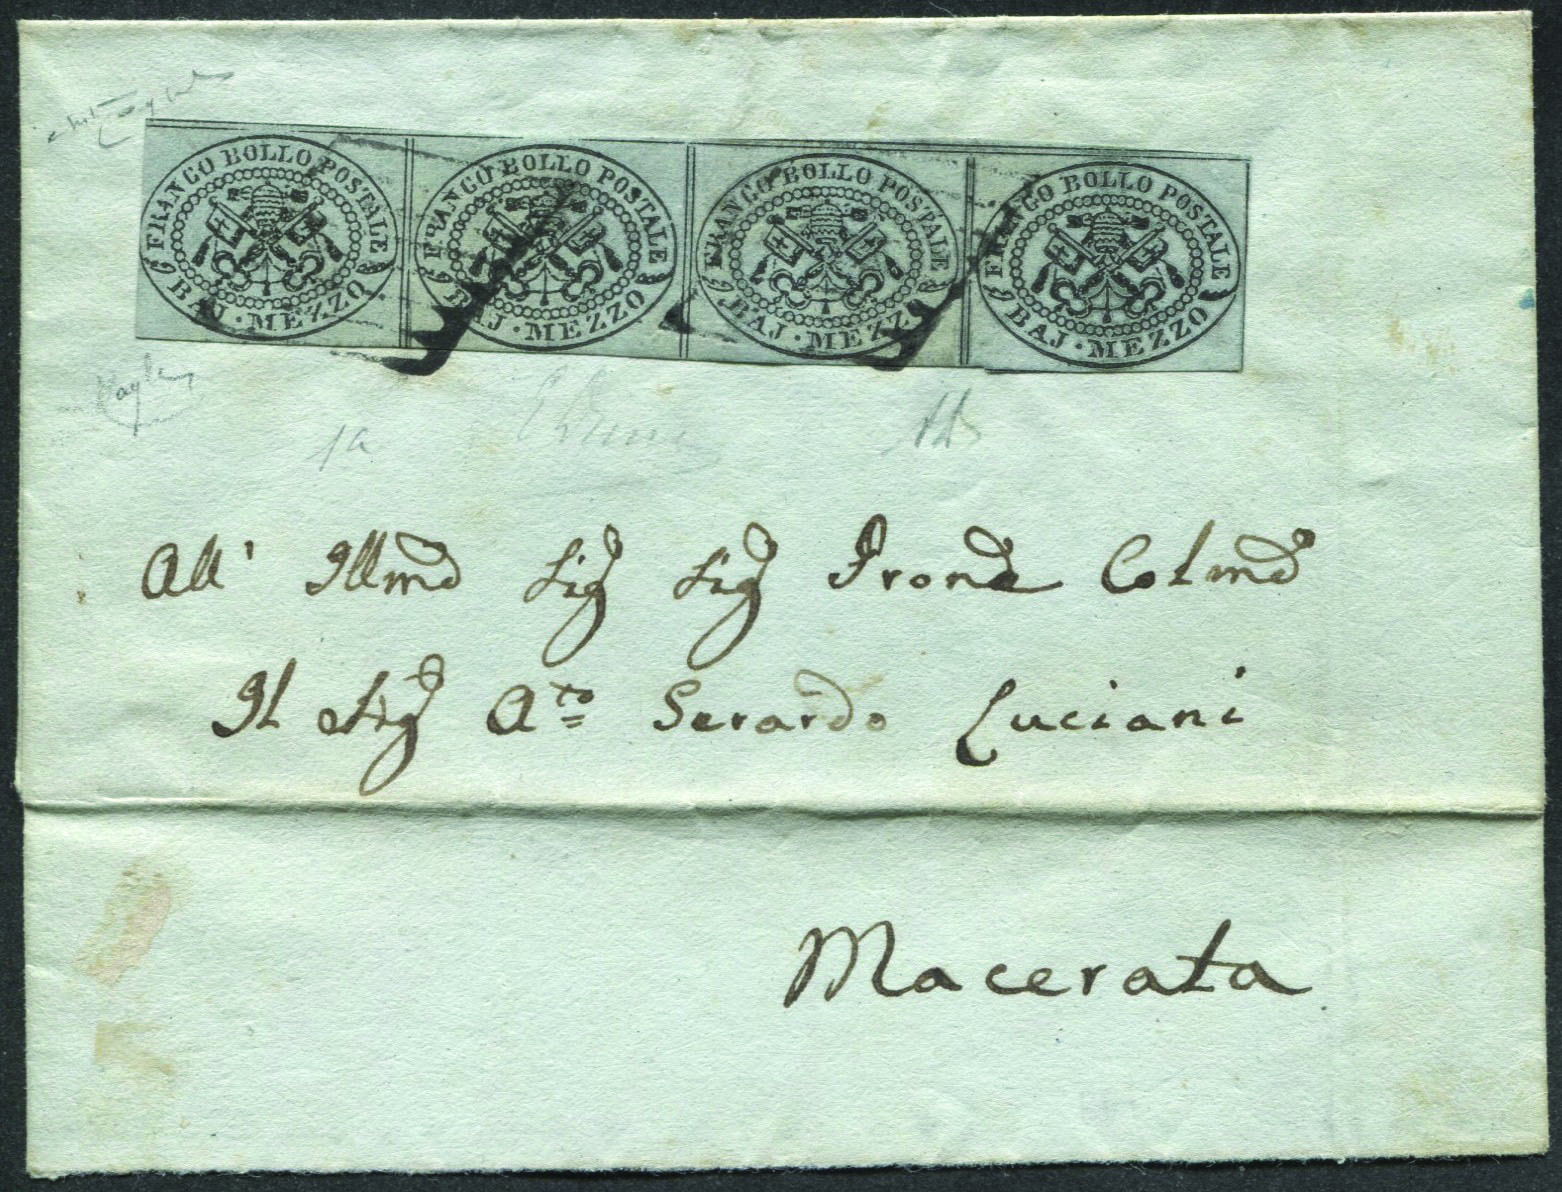 FRANCO BOLLO POSTALE
BAJ · MEZZO
FRANCO BOLLO POSTALE
BAJ · MEZZO
FRANCO BOLLO POSTALE
BAJ · MEZZO
FRANCO BOLLO POSTALE
BAJ · MEZZO
1a
All' Illmo Sigr Sigr Prone Colmo
Il Sigr Ato Serardo Luciani
Macerata